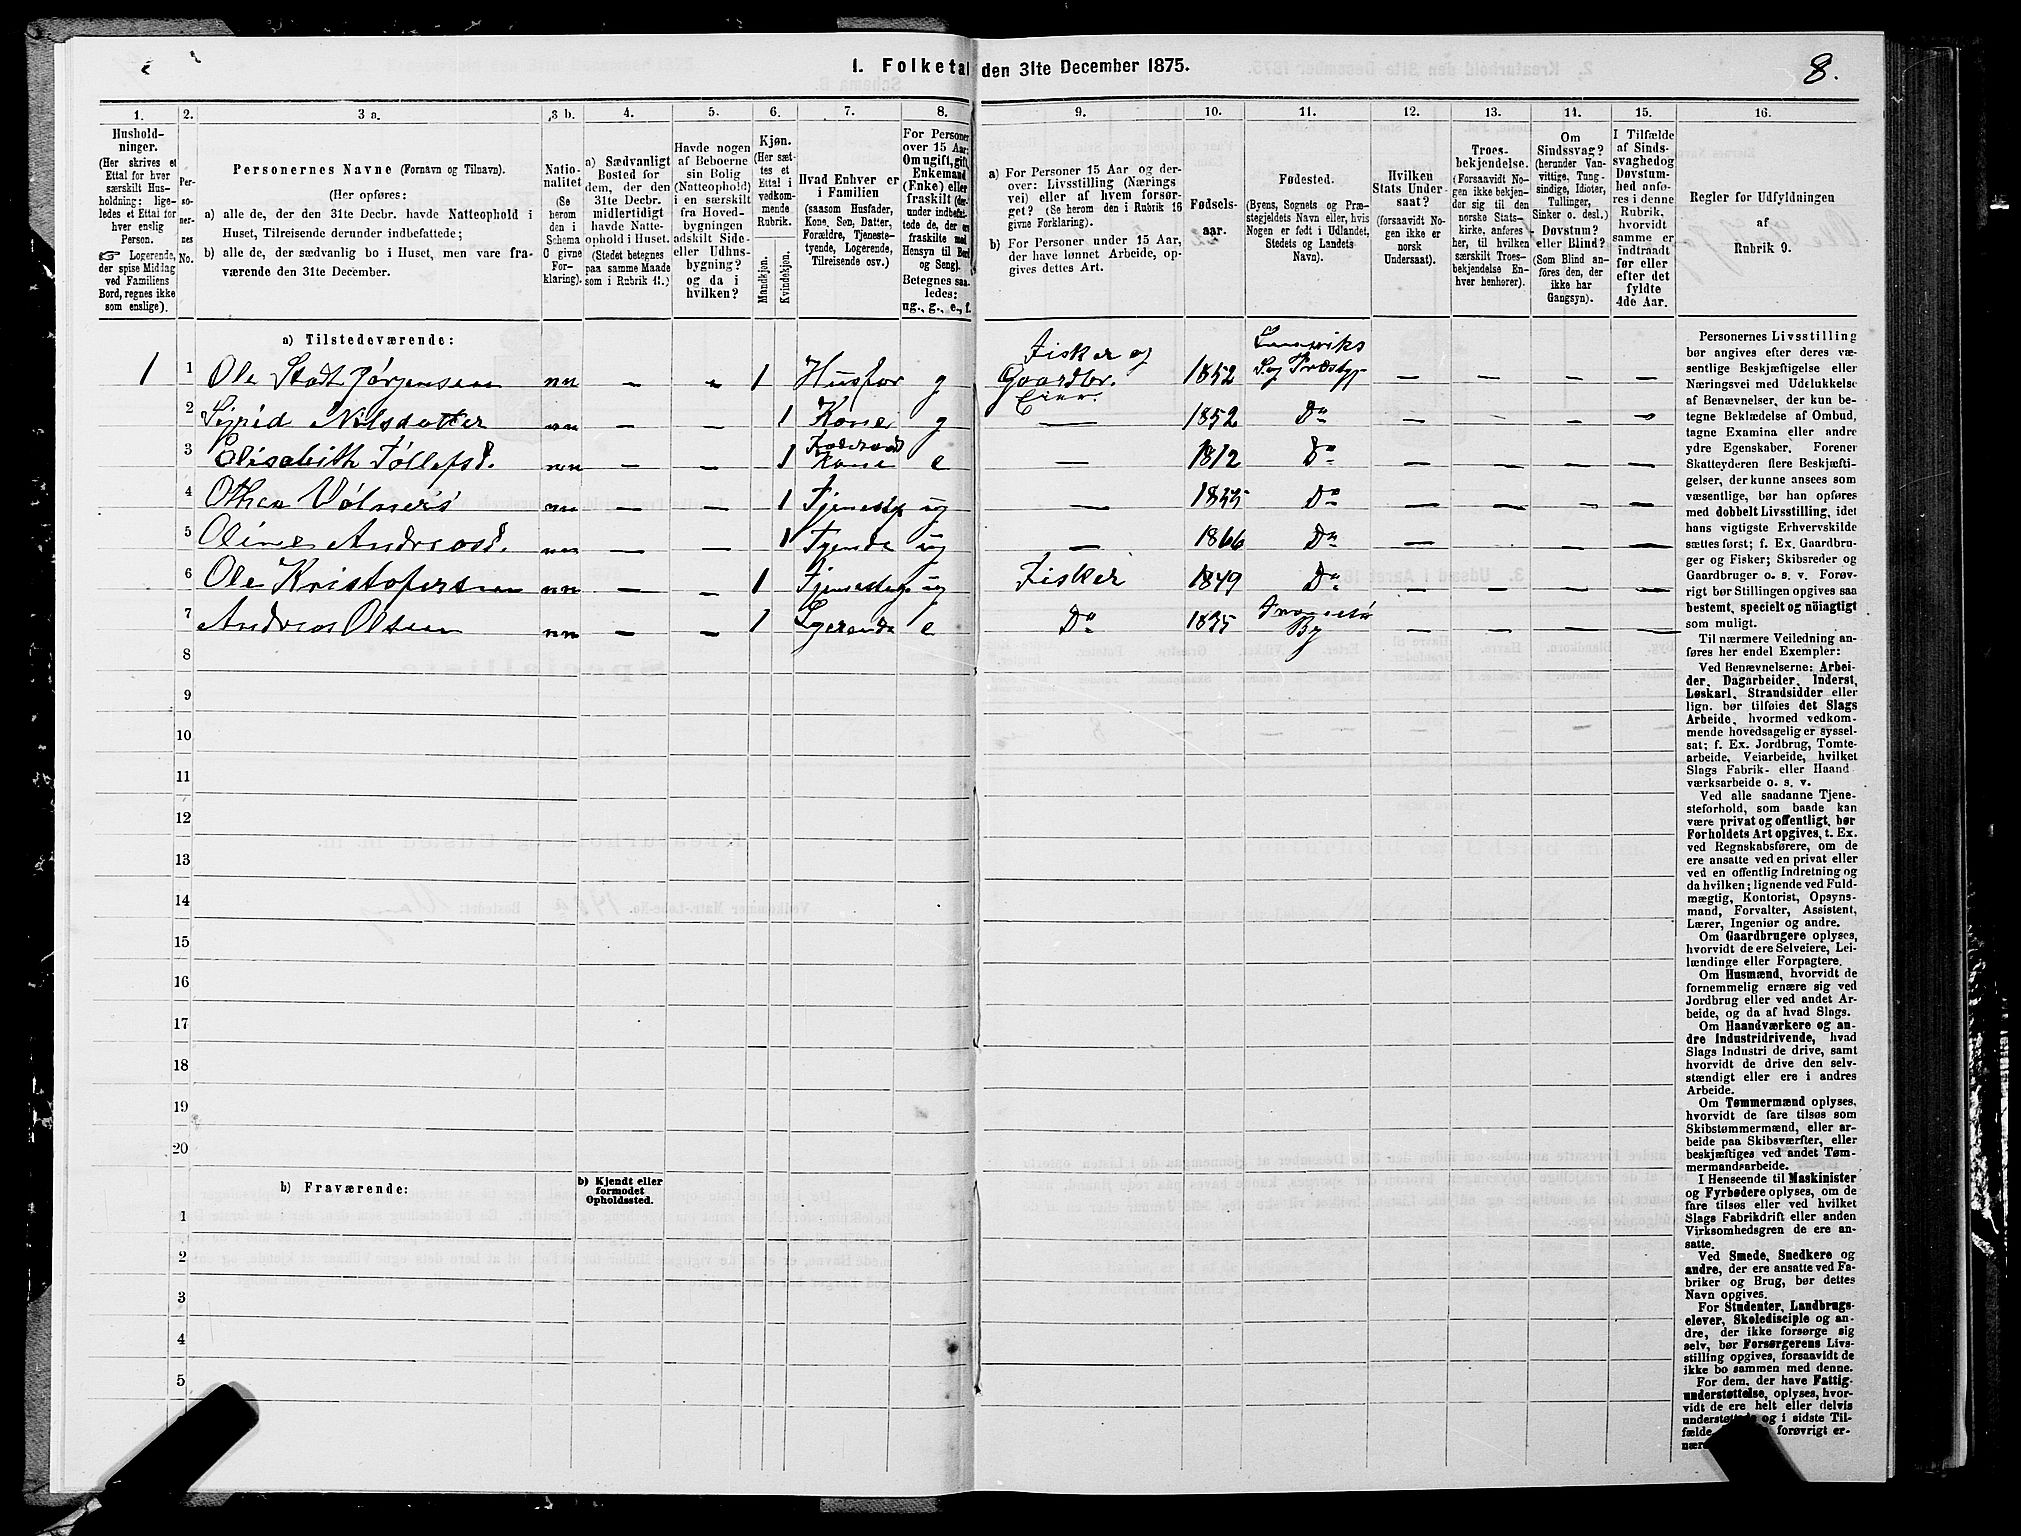 1. Folketal den 31te December 1875.
8.
1. 2. 3 a. 3 b. 4. 5. 6. 7. 8. 9. 10. 11. 12. 13. 14. 15. 16.
Hushold-
ninger.
(Her skrives et
Ettal for hver
særskilt Hus-
holdning: lige-
ledes et Ettal for
hver enslig
Person.
☞ Logerende,
der spise Middag
ved Familiens
Bord, regnes ikke
som enslige).
Per-
soner-
nes
No.
Personernes Navne (Fornavn og Tilnavn).
(Her opføres:
a) alle de, der den 31te Decbr. havde Natteophold i
Huset, Tilreisende derunder indbefattede;
b) alle de, der sædvanlig bo i Huset, men vare fra-
værende den 31te December.
Natio-
nalitet
(Se
herom
den i
Schema
C givne
For-
klaring).
a) Sædvanligt
Bosted for
dem, der den
31te Decbr.
midlertidigt
havde Natte-
ophold i Huset.
(Stedet betegnes
paa samme Maade
som i Rubrik 11.)
Havde nogen
af Beboerne
sin Bolig
(Natteophold)
i en særskilt
fra Hoved-
bygningen
adskilt Side-
eller Udhus-
bygning?
og da i
hvilken?
Kjøn.
(Her sæt-
tes et
Ettal i
vedkom-
mende
Rubrik.
Mandkjøn.
Kvindekjøn.
Hvad Enhver er
i Familien
(saasom Husfader,
Kone, Søn, Datter,
Forældre, Tjeneste-
tyende, Logerende,
Tilreisende osv.)
For Personer
over 15 Aar:
Om ugift, gift,
Enkemand
(Enke) eller
fraskilt (der-
under indbefat-
tede de, der ere
fraskilte med
Hensyn til Bord
og Seng).
Betegnes saa-
ledes:
ug., g., e., f.
a) For Personer 15 Aar og der-
over: Livsstilling (Nærings
vei) eller af hvem forsør-
get? (Se herom den i Rubrik 16
givne Forklaring).
b) For Personer under 15 Aar,
der have lønnet Arbeide, op-
gives dettes Art.
Fødsels-
aar.
Fødested.
(Byens, Sognets og Præ-
stegjeldets Navn eller, hvis
Nogen er født i Udlandet,
Stedets og Landets
Navn).
Hvilken
Stats Under-
saat?
(forsaavidt No-
gen ikke er
norsk
Undersaat).
Troes-
bekjendelse.
(Forsaavidt No-
gen ikke bekjen-
der sig til den
norske Stats-
kirke, anføres
her, til hvilken
særskilt Troes-
bekjendelse En-
hver henhører).
Om
Sindssvag?
(herunder Van-
vittige, Tung-
sindige, Idioter,
Tullinger,
Sinker o. desl.)
Døvstum?
eller Blind?
(Som Blind an-
føres den, der
ikke har
Gangsyn).
I Tilfælde
af Sinds-
svaghed og
Døvstum-
hed anfø-
res i denne
Rubrik,
hvorvidt
samme er
indtraadt
før eller
efter det
fyldte
4de Aar.
Regler for Udfyldningen
af
Rubrik 9.
a) Tilstedeværende:
1 1 Ole Stadt Jørgensen nn — — 1 Husfar g Fisker og Gaardbr. Eier. 1852 Lenviks S. og Præstgj. — — — —
2 Sigrid Nilsdatter nn — — 1 Kone g — 1852 Do — — — —
3 Elisabith Tøllefsd. nn — — 1 Kone e — 1812 Do — — — —
4 Othea Vølners nn — — 1 Tjenestp ug — 1855 Do — — — —
5 Oline Andreasd. nn — — 1 Tyende ug — 1866 Do — — — —
6 Ole Kristofersen nn — — 1 Tjenesteg. ug Fisker 1849 Do — — — —
7 Andreas Olsen nn — — 1 Lgerende e Do 1835 Tromsø By — — — —
8
9
10
11
12
13
14
15
16
17
18
19
20
b) Fraværende:
b) Kjendt eller
formodet
Opholdssted.
1
2
3
4
5
Personernes Livsstilling
bør angives efter deres væ-
sentlige Beskjæftigelse eller
Næringsvei med Udelukkelse
af Benævnelser, der kun be-
tegne Beklædelse af Ombud,
tagne Examina eller andre
ydre Egenskaber. Forener
Skatteyderen flere Beskjæfti-
gelser, der kunne ansees som
væsentlige, bør han opføres
med dobbelt Livsstilling, idet
hans vigtigste Erhvervskilde
sættes først; f. Ex. Gaardbru-
ger og Fisker; Skibsreder og
Gaardbruger o. s. v. Forøv-
rigt bør Stillingen opgives saa
bestemt, specielt og nöiagtigt
som muligt.
Til nærmere Veiledning an-
føres her endel Exempler:
Ved Benævnelserne: Arbei-
der, Dagarbeider, Inderst,
Løskarl, Strandsidder eller
lign. bør tilføies det Slags
Arbeide, hvormed vedkom-
mende hovedsagelig er syssel-
sat; f. Ex. Jordbrug, Tomte-
arbeide, Veiarbeide, hvilket
Slags Fabrik- eller Haand
værksarbeide o. s. v.
Ved alle saadanne Tjene-
steforhold, som baade kan
være privat og offentligt, bør
Forholdets Art opgives, t. Ex.
ved Regnskabsførere, om de
ere ansatte ved en privat eller
ved en offentlig Indretning og
da hvilken; lignende ved Fuld-
mægtig, Kontorist, Opsyns-
mand, Forvalter, Assistent,
Lærer, Ingeniør og andre.
Om Gaardbrugere oplyses,
hvorvidt de ere Selveiere, Lei-
lændinge eller Forpagtere.
Om Husmænd, hvorvidt de
fornemmelig ernære sig ved
Jordbrug eller ved andet Ar-
beide, og da af hvad Slags.
Om Haandværkere og an-
dre Industridrivende, hvad
Slags Industri de drive, samt
hvorvidt de drive den selv-
stændigt eller ere i andres
Arbeide.
Om Tømmermænd oplyses,
hvorvidt de fare tilsøs som
Skibstømmermænd, eller ar-
beide paa Skibsværfter, eller
beskjæftiges ved andet Tøm-
mermandsarbeide.
I Henseende til Maskinister
og Fyrbødere oplyses, om de
fare tilsøs eller ved hvilket
Slags Fabrikdrift eller anden
Virksomhedsgren de ere an-
satte.
Ved Smede, Snedkere og
andre, der ere ansatte ved Fa-
briker og Brug, bør dettes
Navn opgives.
For Studenter, Landbrugs-
elever, Skoledisciple og an-
dre, der ikke forsørge sig
selv, bør Forsørgerens Livs-
stilling opgives, forsaavidt de
ikke bo sammen med denne.
For dem, der have Fattig-
understøttelse, oplyses, hvor-
vidt de ere helt eller delvis
understøttede og i sidste Til-
fælde, forøvrigt er-